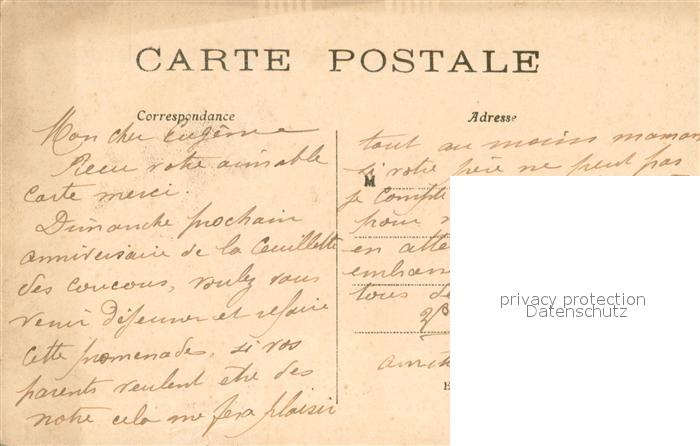 CARTE POSTALE
Correspondance
Mon cher Eugène
Recu votre aimable
carte merci.
Dimanche prochain
anniversaire de la Ceuillette
des coucous, voulez vous
venir déjeuner et refaire
cette promenade, si vos
parents veulent etre des
notre cela me fera plaisir
Adresse
tout au moins maman
si votre père ne peut pas
M
je compte
pour
en atte
embras
tous de
privacy protection
Datenschutz